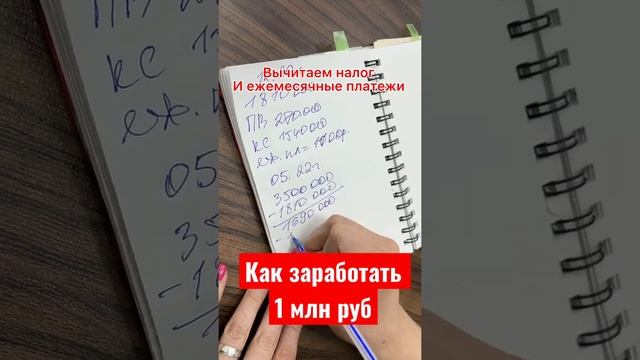 Вычитаем налог
И ежемесячные платежи
ПВ 270000
КС 1540000
еж. пл =
05. 22г.
3500 000
-1810 000
1690 000
Как заработать
1 млн руб